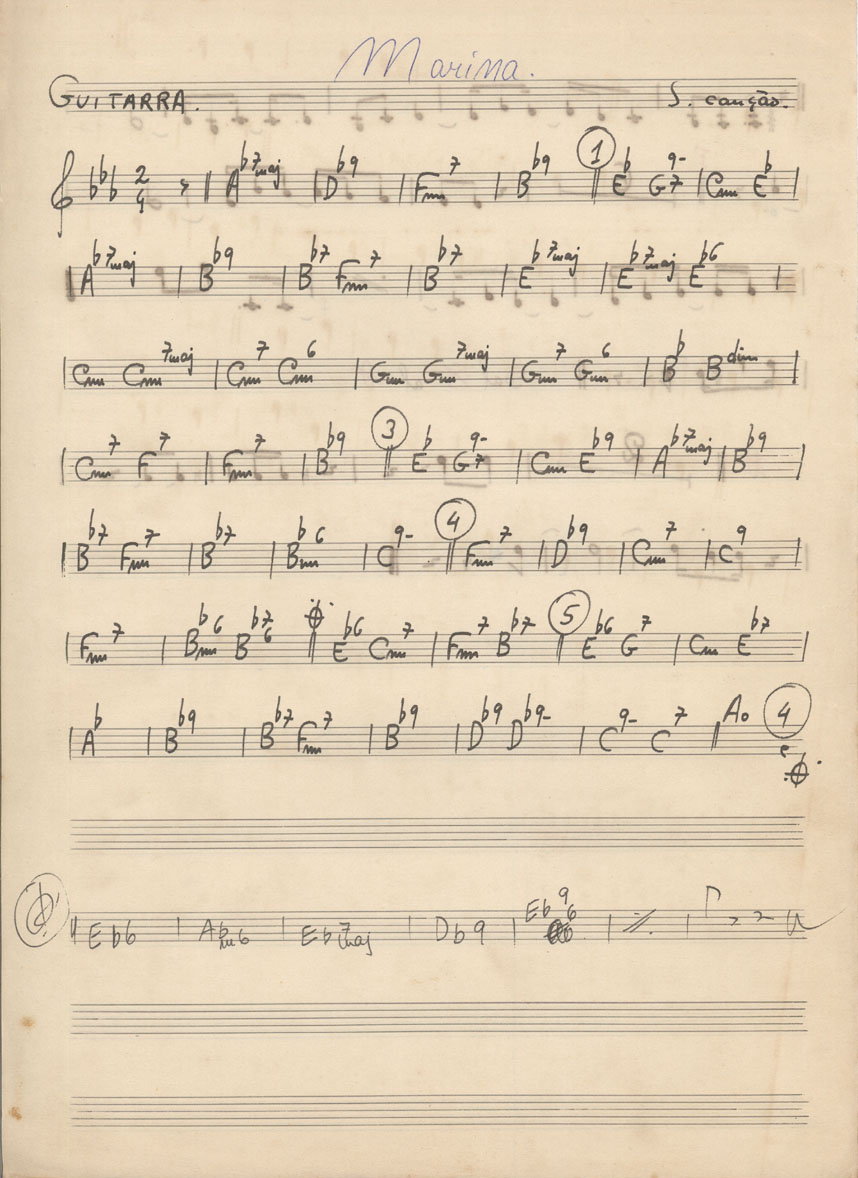 Marina.
GUITARRA. S. canção.
2/4 A♭7maj | D♭9 | Fm7 | B♭9 ① E♭ G7 9- | Cm E♭ |
A♭7maj | B♭9 | B♭7 Fm7 | B♭7 | E♭7maj | E♭7maj E♭6 |
Cm Cm7maj | Cm7 Cm6 | Gm Gm7maj | Gm7 Gm6 | B♭ Bdim |
Cm7 F7 | Fm7 | B♭9 ③ E♭ G7 9- | Cm E♭9 | A♭7maj | B♭9 |
B♭7 Fm7 | B♭7 | B♭m6 | C9- ④ Fm7 | D♭9 | Cm7 | C9 |
Fm7 | B♭m6 B♭7 6 𝄌 E♭6 Cm7 | Fm7 B♭7 ⑤ E♭6 G7 | Cm E♭7 |
A♭ | B♭9 | B♭7 Fm7 | B♭9 | D♭9 D♭9- | C9- C7 || Ao ④
e 𝄌
𝄌 E♭6 | A♭m6 | E♭7maj | D♭9 | E♭9 6 | 𝄎 |